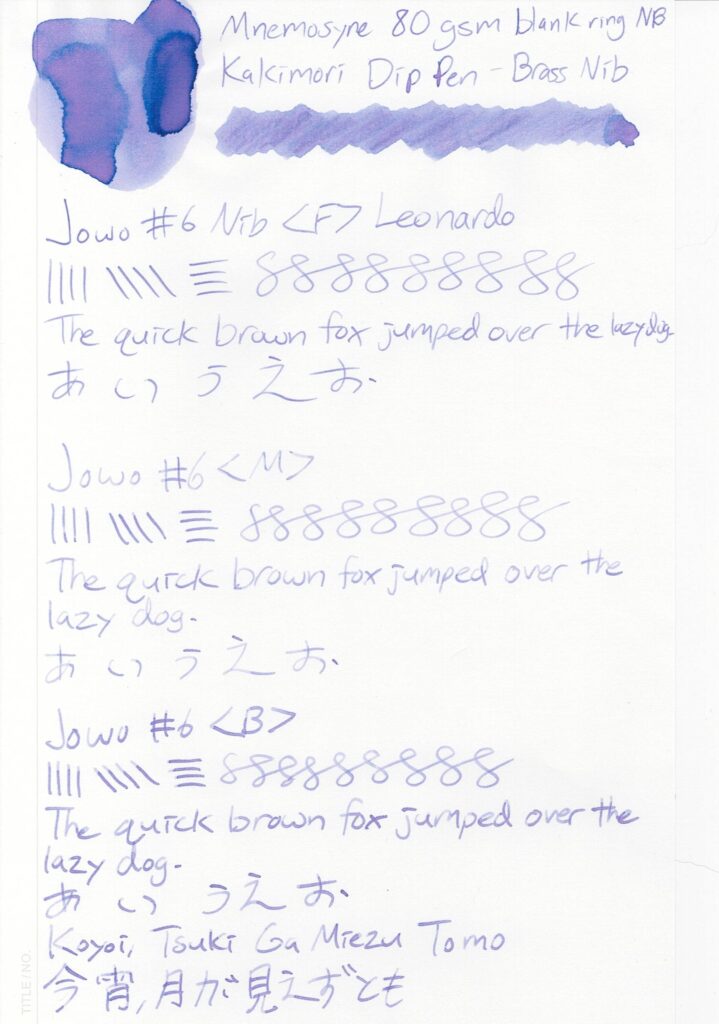 Mnemosyne 80 gsm blank ring NB
Kakimori Dip Pen - Brass Nib
Jowo #6 Nib <F> Leonardo
The quick brown fox jumped over the lazy dog.
あ い う え お.
Jowo #6 <M>
The quick brown fox jumped over the
lazy dog.
あ い う え お.
Jowo #6 <B>
The quick brown fox jumped over the
lazy dog.
あ い う え お.
Koyoi, Tsuki Ga Miezu Tomo
今宵,月が見えずとも
TITLE/NO.